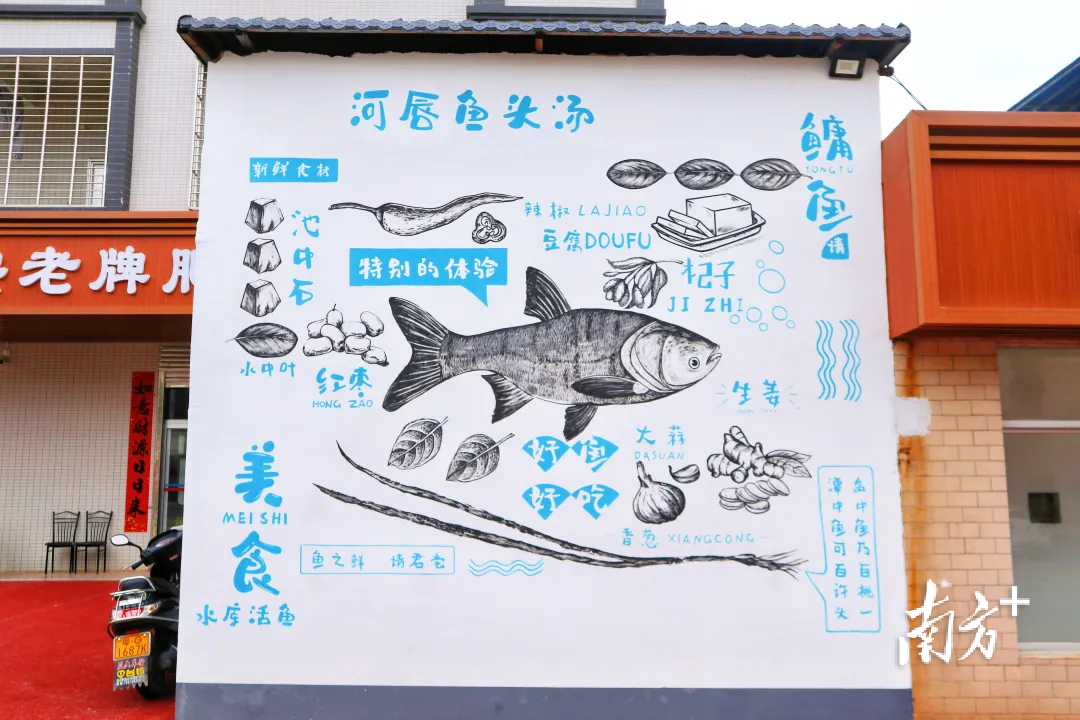 河唇鱼头汤
鳙
YONGYU
鱼
请
新鲜食材
池中石
辣椒 LAJIAO
豆腐DOUFU
特别的体验
杞子
JI ZHI
水中叶
红枣
HONG ZAO
生姜
大蒜
DASUAN
好鱼
好吃
美
MEISHI
食
香葱 XIANGCONG
鱼之鲜 请君尝
水库活鱼
盘中鱼乃百挑一
潭中鱼可百许头
老牌
如意财源日日来
1687K
南方+